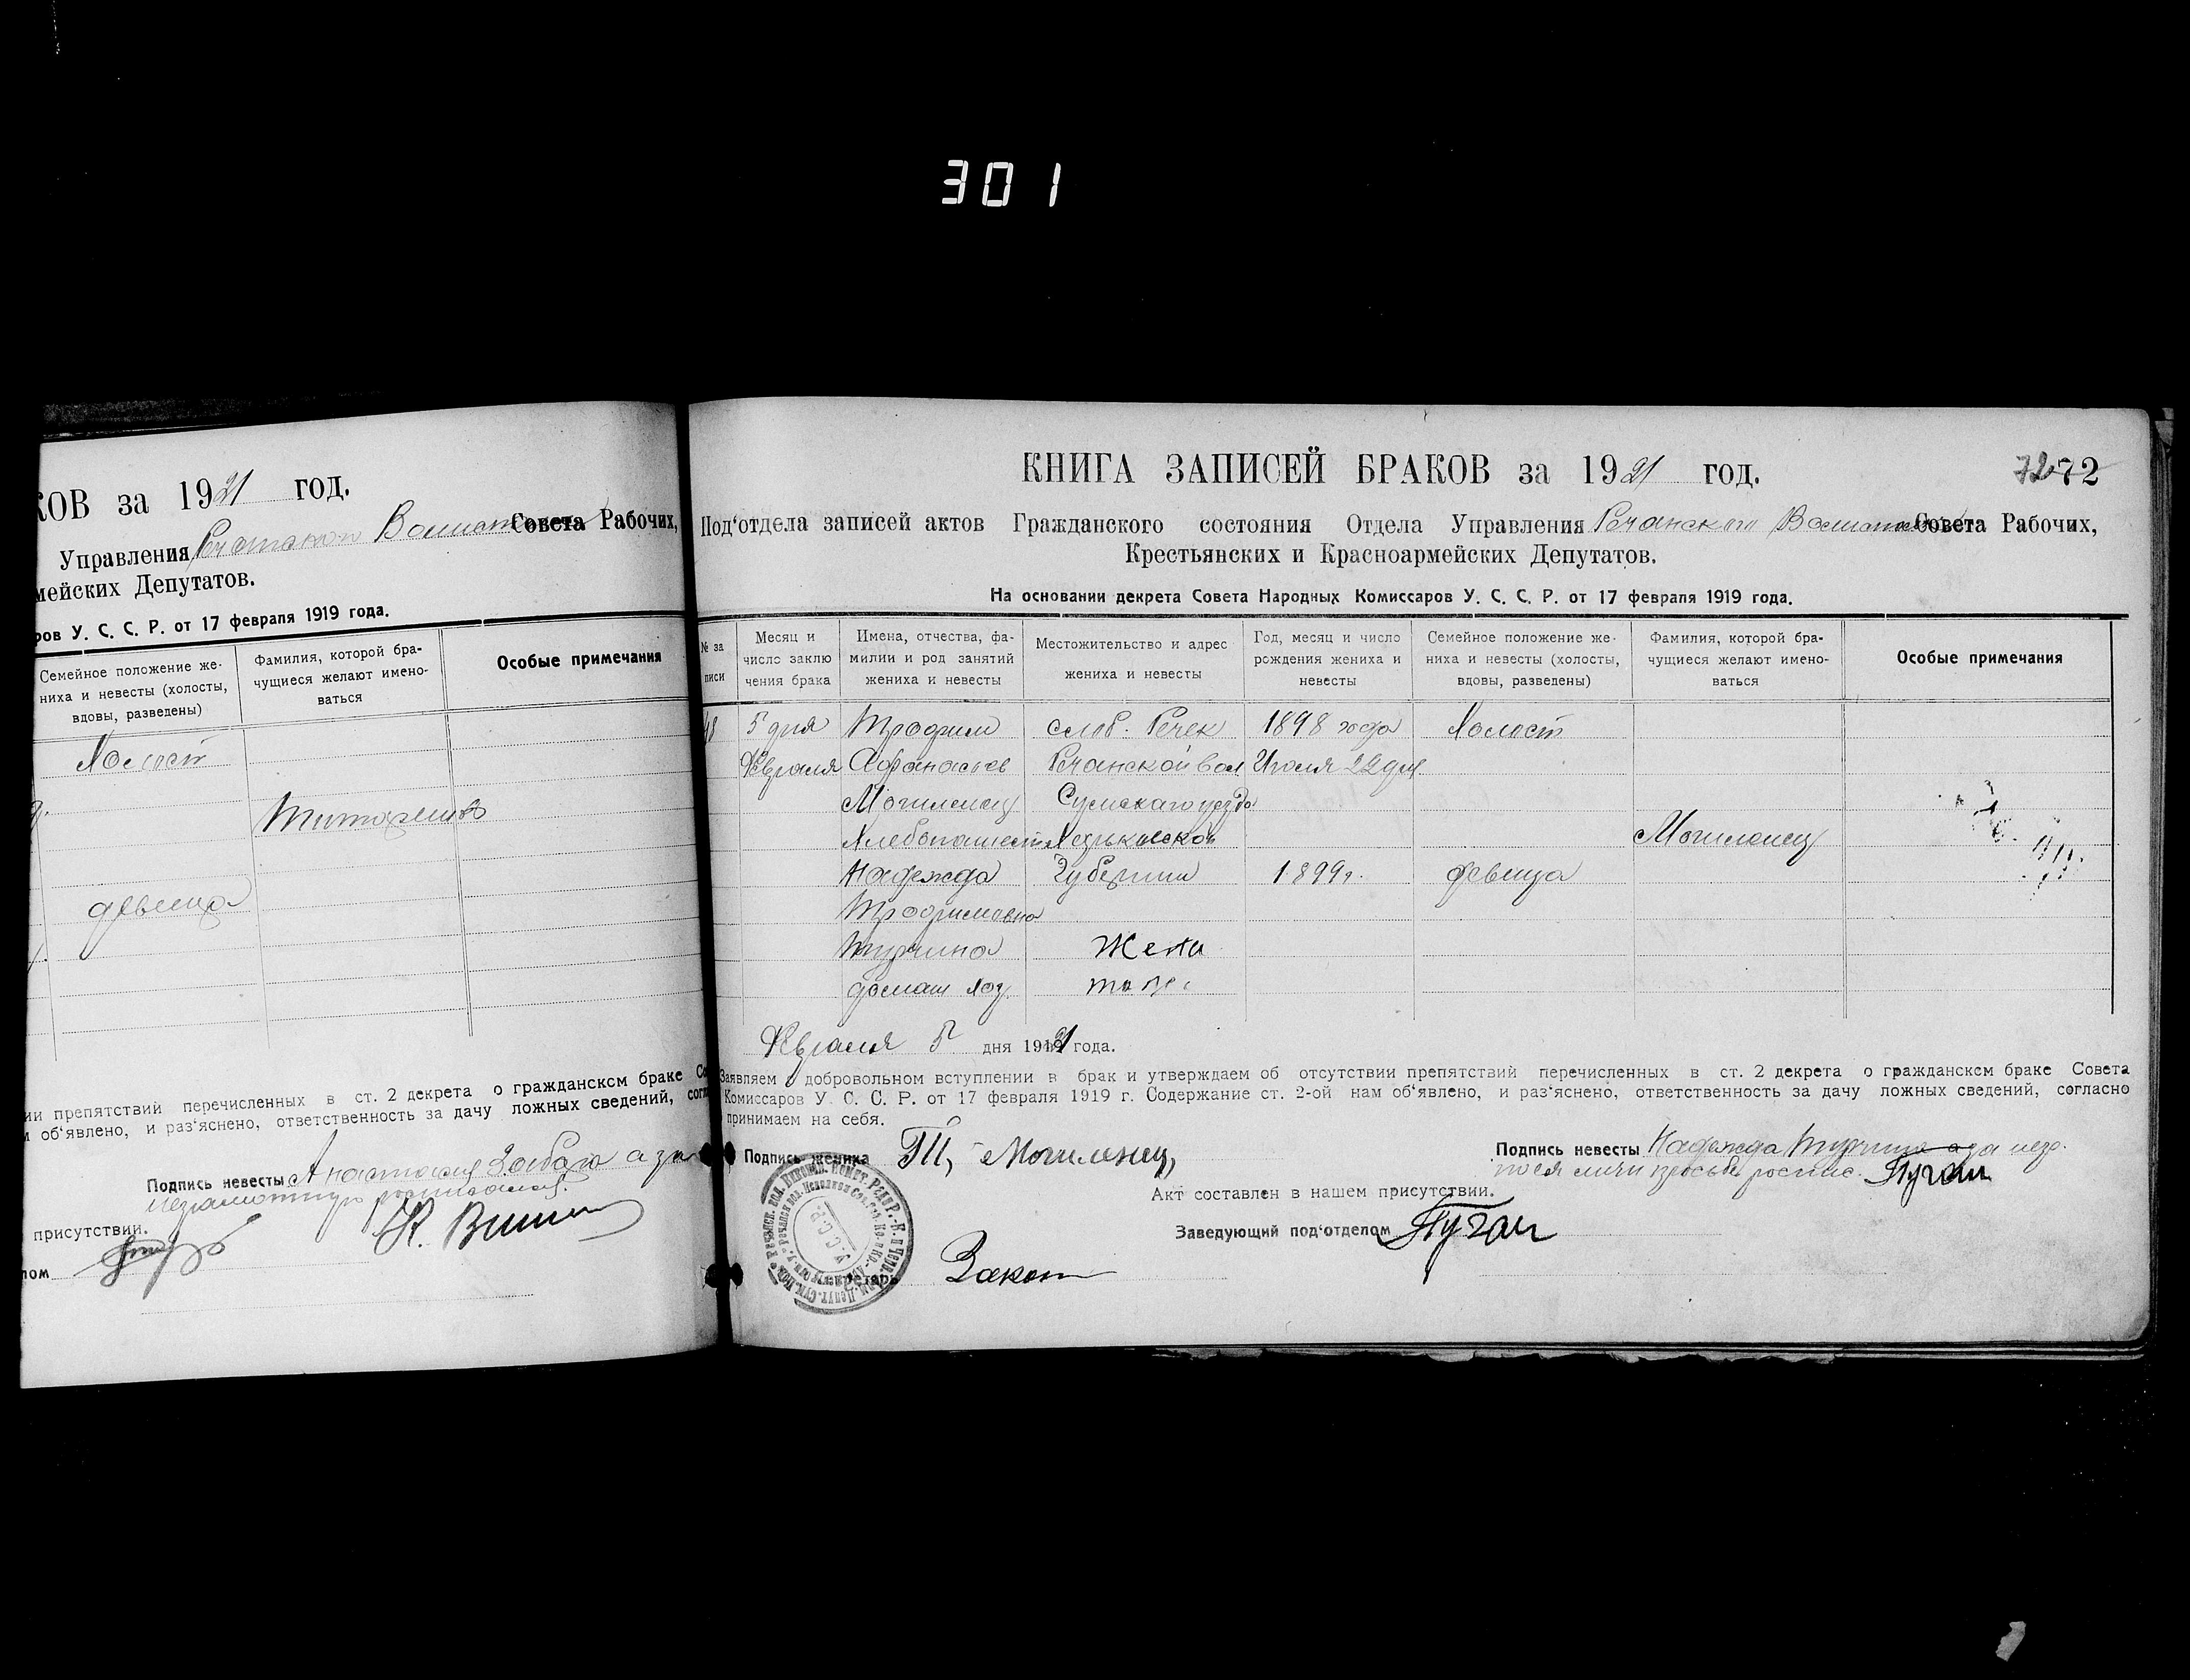 301
КОВ за 1921 год.
Управления Речанского Волостн Совета Рабочих,
мейских Депутатов.
ров У. С. С. Р. от 17 февраля 1919 года.
Семейное положение же-
ниха и невесты (холосты,
вдовы, разведены)
Фамилия, которой бра-
чущиеся желают имено-
ваться
Особые примечания
Холост
девица
ии препятствий перечисленных в ст. 2 декрета о гражданском браке Со
об'явлено, и раз'яснено, ответственность за дачу ложных сведений, согл
Подпись невесты Анастасия а за
неграмотную
присутствии.
лом
КНИГА ЗАПИСЕЙ БРАКОВ за 1921 год.
72 72
Под'отдела записей актов Гражданского состояния Отдела Управления Речанского Волостн Совета Рабочих,
Крестьянских и Красноармейских Депутатов.
На основании декрета Совета Народных Комиссаров У. С. С. Р. от 17 февраля 1919 года.
№ за
писи
Месяц и
число заклю
чения брака
Имена, отчества, фа-
милии и род занятий
жениха и невесты
Местожительство и адрес
жениха и невесты
Год, месяц и число
рождения жениха и
невесты
Семейное положение же-
ниха и невесты (холосты,
вдовы, разведены)
Фамилия, которой бра-
чущиеся желают имено-
ваться
Особые примечания
48 5 дня Трофим слоб. Речек 1898 года Холост
Февраля Афанасьев Речанской вол Июля 22 дня
Могиленец Сумскаго уезда
Хлебопашест Харьковской Могиленец
Надежда Губернии 1899г. девица
Трофимовна
Турчина Жена
домаш хоз.
Февраля 5 дня 1921 года.
Заявляем о добровольном вступлении в брак и утверждаем об отсутствии препятствий перечисленных в ст. 2 декрета о гражданском браке Совета
Комиссаров У. С. С. Р. от 17 февраля 1919 г. Содержание ст. 2-ой нам об'явлено, и раз'яснено, ответственность за дачу ложных сведений, согласно
принимаем на себя.
Подпись жениха Т, Могиленец,
Подпись невесты Надежда Турчина а за негр.
по ея личн просьбе роспис. Пугач
Акт составлен в нашем присутствии.
Заведующий под'отделом Пугач
Секретарь
У.С.С.Р.